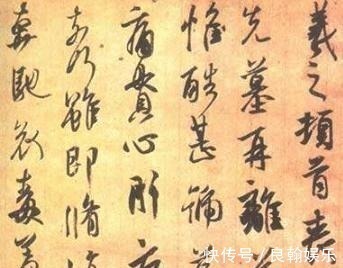 羲之頓首喪
先墓再離
惟酷甚號
痛貫心肝痛
奈何雖即脩
奔馳哀毒益
快传号/良翰娱乐